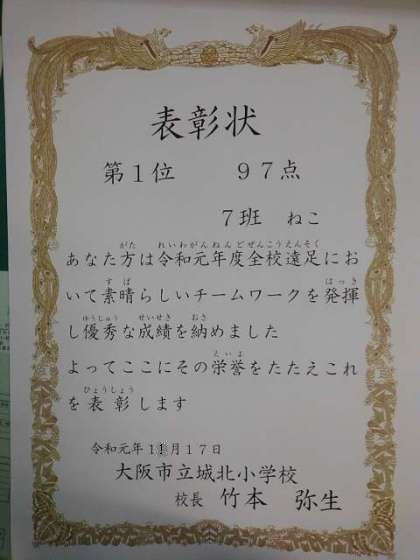 表彰状
第１位　９７点
７班　ねこ
あなた方は令和元年度全校遠足にお
いて素晴らしいチームワークを発揮
し優秀な成績を納めました
よってここにその栄誉をたたえこれ
を表彰します
令和元年１１月１７日
大阪市立城北小学校
校長　竹本　弥生